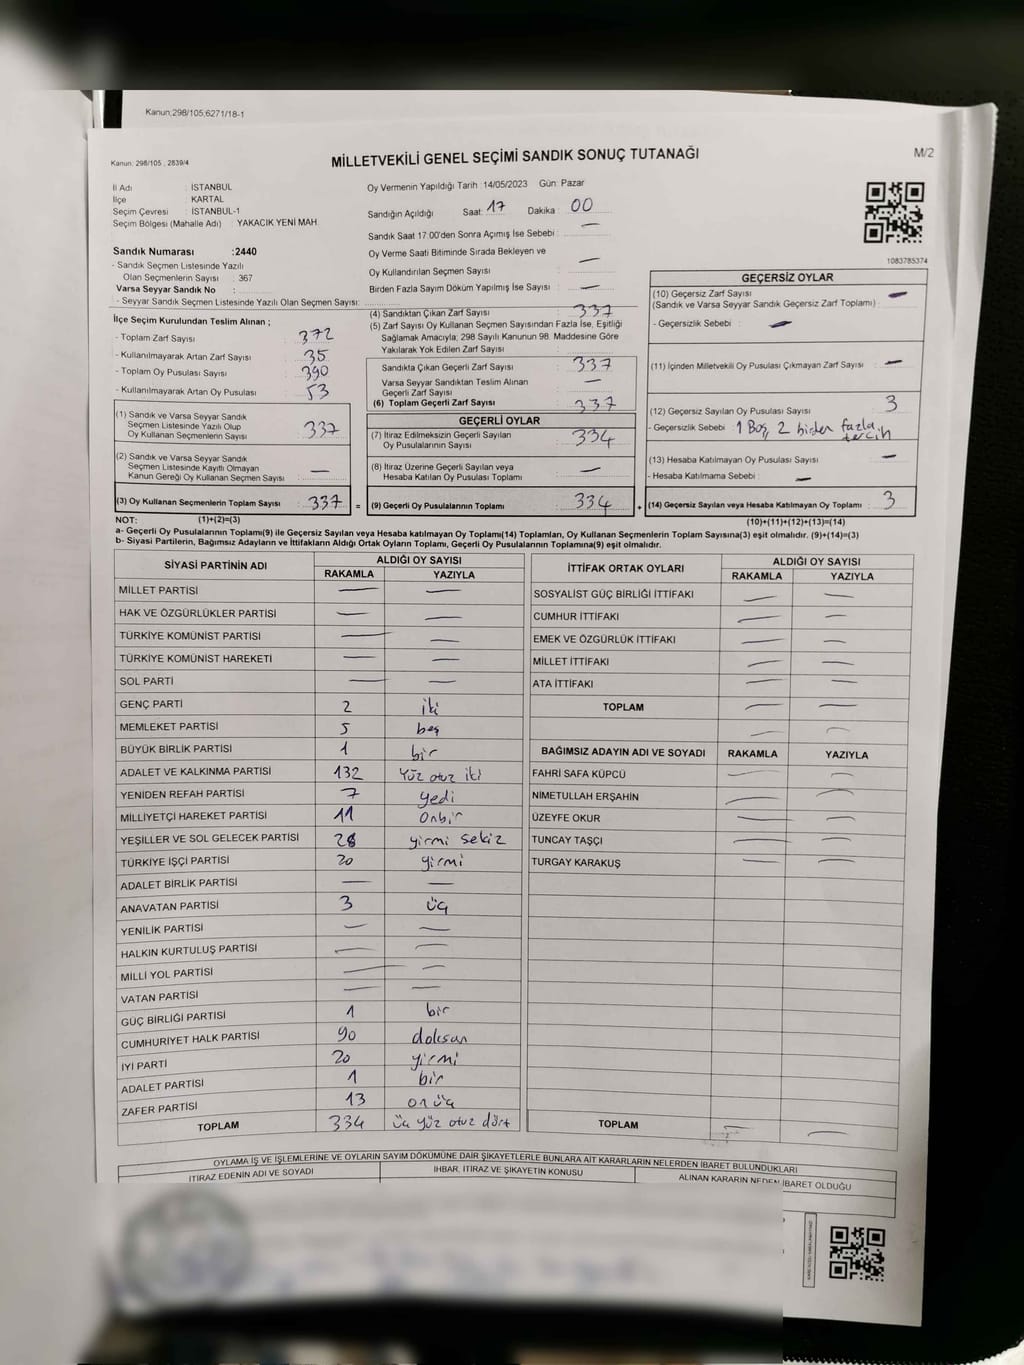 Kanun;298/105;6271/18-1
Kanun: 298/105 , 2839/4
MİLLETVEKİLİ GENEL SEÇİMİ SANDIK SONUÇ TUTANAĞI
M/2
İl Adı : İSTANBUL
İlçe : KARTAL
Seçim Çevresi : İSTANBUL-1
Seçim Bölgesi (Mahalle Adı) : YAKACIK YENİ MAH.
Sandık Numarası :2440
- Sandık Seçmen Listesinde Yazılı
Olan Seçmenlerin Sayısı : 367
Varsa Seyyar Sandık No :
- Seyyar Sandık Seçmen Listesinde Yazılı Olan Seçmen Sayısı:
Oy Vermenin Yapıldığı Tarih :14/05/2023 Gün: Pazar
Sandığın Açıldığı Saat: 17 Dakika : 00
Sandık Saat 17:00'den Sonra Açımış İse Sebebi : —
Oy Verme Saati Bitiminde Sırada Bekleyen ve
Oy Kullandırılan Seçmen Sayısı : —
Birden Fazla Sayım Döküm Yapılmış İse Sayısı : —
1083785374
İlçe Seçim Kurulundan Teslim Alınan ;
- Toplam Zarf Sayısı : 372
- Kullanılmayarak Artan Zarf Sayısı : 35
- Toplam Oy Pusulası Sayısı : 390
- Kullanılmayarak Artan Oy Pusulası : 53
(1) Sandık ve Varsa Seyyar Sandık
Seçmen Listesinde Yazılı Olup
Oy Kullanan Seçmenlerin Sayısı : 337
(2) Sandık ve Varsa Seyyar Sandık
Seçmen Listesinde Kayıtlı Olmayan
Kanun Gereği Oy Kullanan Seçmen Sayısı : —
(3) Oy Kullanan Seçmenlerin Toplam Sayısı : 337 =
(4) Sandıktan Çıkan Zarf Sayısı : 337
(5) Zarf Sayısı Oy Kullanan Seçmen Sayısından Fazla İse, Eşitliği
Sağlamak Amacıyla; 298 Sayılı Kanunun 98. Maddesine Göre
Yakılarak Yok Edilen Zarf Sayısı :
Sandıkta Çıkan Geçerli Zarf Sayısı : 337
Varsa Seyyar Sandıktan Teslim Alınan
Geçerli Zarf Sayısı : —
(6) Toplam Geçerli Zarf Sayısı : 337
GEÇERLİ OYLAR
(7) İtiraz Edilmeksizin Geçerli Sayılan
Oy Pusulalarının Sayısı : 334
(8) İtiraz Üzerine Geçerli Sayılan veya
Hesaba Katılan Oy Pusulası Toplamı : —
(9) Geçerli Oy Pusulalarının Toplamı : 334 +
GEÇERSİZ OYLAR
(10) Geçersiz Zarf Sayısı : —
(Sandık ve Varsa Seyyar Sandık Geçersiz Zarf Toplamı) :
- Geçersizlik Sebebi : —
(11) İçinden Milletvekili Oy Pusulası Çıkmayan Zarf Sayısı : —
(12) Geçersiz Sayılan Oy Pusulası Sayısı : 3
- Geçersizlik Sebebi : 1 Boş, 2 birden fazla
tercih
(13) Hesaba Katılmayan Oy Pusulası Sayısı : —
- Hesaba Katılmama Sebebi : —
(14) Geçersiz Sayılan veya Hesaba Katılmayan Oy Toplamı : 3
NOT: (1)+(2)=(3)
(10)+(11)+(12)+(13)=(14)
a- Geçerli Oy Pusulalarının Toplamı(9) ile Geçersiz Sayılan veya Hesaba katılmayan Oy Toplamı(14) Toplamları, Oy Kullanan Seçmenlerin Toplam Sayısına(3) eşit olmalıdır. (9)+(14)=(3)
b- Siyasi Partilerin, Bağımsız Adayların ve İttifakların Aldığı Ortak Oyların Toplamı, Geçerli Oy Pusulalarının Toplamına(9) eşit olmalıdır.
SİYASİ PARTİNİN ADI ALDIĞI OY SAYISI
RAKAMLA YAZIYLA
MİLLET PARTİSİ — —
HAK VE ÖZGÜRLÜKLER PARTİSİ — —
TÜRKİYE KOMÜNİST PARTİSİ — —
TÜRKİYE KOMÜNİST HAREKETİ — —
SOL PARTİ — —
GENÇ PARTİ 2 iki
MEMLEKET PARTİSİ 5 beş
BÜYÜK BİRLİK PARTİSİ 1 bir
ADALET VE KALKINMA PARTİSİ 132 Yüz otuz iki
YENİDEN REFAH PARTİSİ 7 yedi
MİLLİYETÇİ HAREKET PARTİSİ 11 Onbir
YEŞİLLER VE SOL GELECEK PARTİSİ 28 yirmi sekiz
TÜRKİYE İŞÇİ PARTİSİ 20 yirmi
ADALET BİRLİK PARTİSİ — —
ANAVATAN PARTİSİ 3 üç
YENİLİK PARTİSİ — —
HALKIN KURTULUŞ PARTİSİ — —
MİLLİ YOL PARTİSİ — —
VATAN PARTİSİ — —
GÜÇ BİRLİĞİ PARTİSİ 1 bir
CUMHURİYET HALK PARTİSİ 90 doksan
İYİ PARTİ 20 yirmi
ADALET PARTİSİ 1 bir
ZAFER PARTİSİ 13 on üç
TOPLAM 334 üç yüz otuz dört
İTTİFAK ORTAK OYLARI ALDIĞI OY SAYISI
RAKAMLA YAZIYLA
SOSYALİST GÜÇ BİRLİĞİ İTTİFAKI — —
CUMHUR İTTİFAKI — —
EMEK VE ÖZGÜRLÜK İTTİFAKI — —
MİLLET İTTİFAKI — —
ATA İTTİFAKI — —
TOPLAM — —
BAĞIMSIZ ADAYIN ADI VE SOYADI RAKAMLA YAZIYLA
FAHRİ SAFA KÜPCÜ — —
NİMETULLAH ERŞAHİN — —
ÜZEYFE OKUR — —
TUNCAY TAŞÇI — —
TURGAY KARAKUŞ — —
TOPLAM — —
OYLAMA İŞ VE İŞLEMLERİNE VE OYLARIN SAYIM DÖKÜMÜNE DAİR ŞİKAYETLERLE BUNLARA AİT KARARLARIN NELERDEN İBARET BULUNDUKLARI
İTİRAZ EDENİN ADI VE SOYADI İHBAR, İTİRAZ VE ŞİKAYETİN KONUSU ALINAN KARARIN NEDEN İBARET OLDUĞU